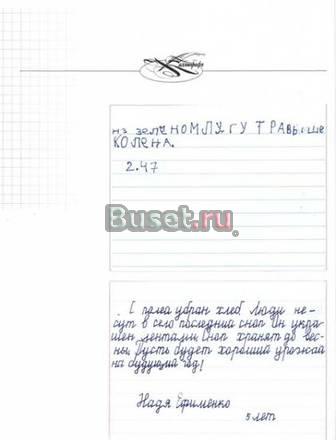 Каллиграф
на зеленом лугу трава выше
колена.
2.47
Buset.ru
С полей убран хлеб Люди не-
сут в село последний сноп Он укра-
шен лентами Сноп хранят до вес-
ны Пусть будет хороший урожай
на будущий год!
Надя Ефименко
5 лет